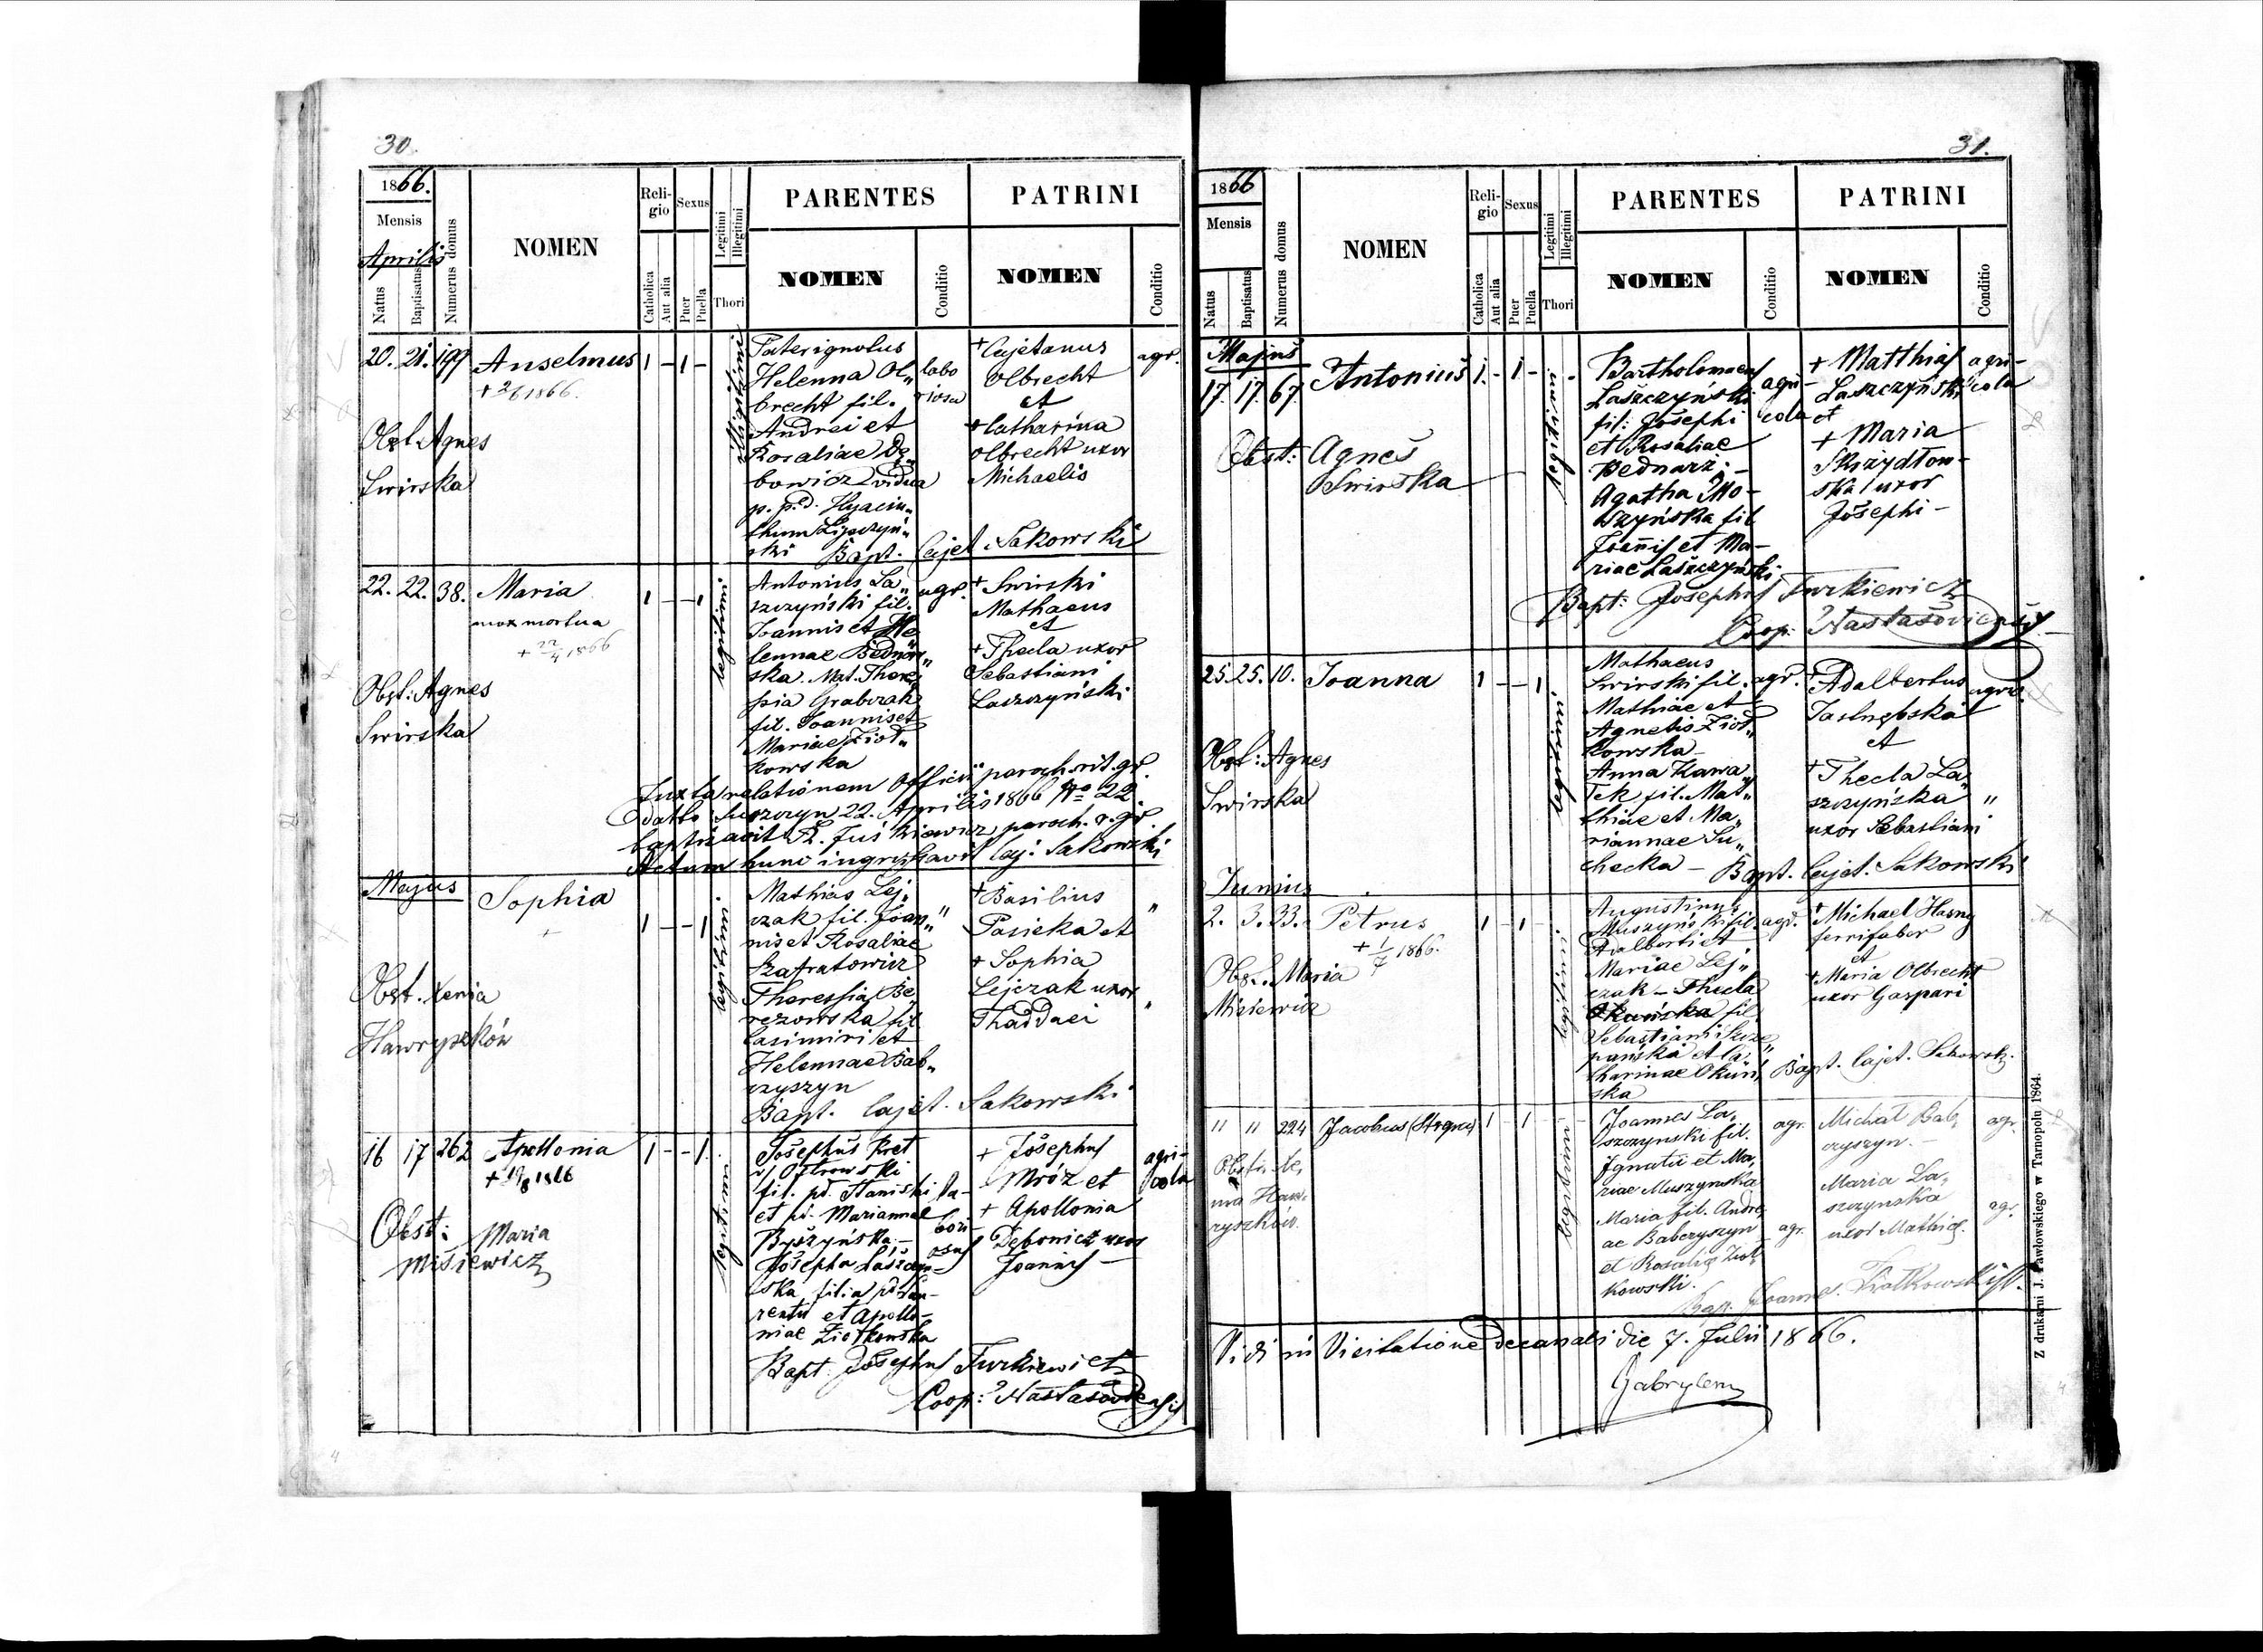 30.
1866.
Mensis
Aprilis
Natus
Baptisatus
Numerus domus
NOMEN
Religio
Catholica
Aut alia
Sexus
Puer
Puella
Legitimi
Illegitimi
Thori
PARENTES
NOMEN
Conditio
PATRINI
NOMEN
Conditio
20. 21. 199 Anselmus 1 - 1 -
Obst. Agnes
Swirska
Pater ignotus
Helenna Ol„
brecht fil.
Andrei et
Rosaliae Dę„
bowicz vidua
p. p.d. Hyacin„
thum
ski
labo
riosa
+ Cajetanus
Olbrecht
et
+ Catharina
Olbrecht uxor
Michaelis
agr.
Bapt. Cajet. Sakowski
22. 22. 38. Maria 1 - - 1
mox mortua
+ 22/4 1866
Obst. Agnes
Swirska
legitimi
Antonius La„
szczyński fil.
Joannis et He„
lennae Bednar„
ska. Mat. There„
sia Grabczak
fil. Joannis et
Mariae Ziół„
kowska
agr.
+ Swirski
Mathaeus
et
+ Thecla uxor
Sebastiani
Laszczyński
Juxta relationem Officii paroch. rit. gr.
22. Aprilis 1866 No 22
baptisavit R. paroch. r. gr.
Actum hunc Caj: Sakowski
Majus
Sophia 1 - - 1
Obst. Xenia
Hawryszków
legitimi
Mathias Lej„
czak fil. Joan„
nis et Rosaliae
Szafratowicz
Theressia Be„
rezowska fil.
Casimiri et
Helennae Bab„
czyszyn
"
+ Basilius
Pasieka et
+ Sophia
Lejczak uxor
Thaddaei
"
"
Bapt. Cajet. Sakowski
16 17 262 Apollonia 1 - - 1
Obst: Maria
Misiewicz
legitimi
Josephus Kret
v/ Ostrowski
fil. pd. Staniski
et pd. Mariannae
Byszyńska. -
Josepha Laszczyń-
ska filia pd. Lau-
rentii et Apollo-
niae Ziółkowska
la-
bori-
osus
+ Josephus
Mróz et
+ Apollonia
Dębowicz uxor
Joannis -
agri-
cola
Bapt: Josephus Turkiewicz
Coop: Nastasoviensis
31.
1866
Mensis
Natus
Baptisatus
Numerus domus
NOMEN
Religio
Catholica
Aut alia
Sexus
Puer
Puella
Legitimi
Illegitimi
Thori
PARENTES
NOMEN
Conditio
PATRINI
NOMEN
Conditio
Majus
17. 17. 67. Antonius 1. - 1 -
Obst: Agnes
Swirska
legitimi
Bartholomaeus
Laszczyński
fil: Josephi
et Rosaliae
Bednarz; -
Agatha Mo-
szyńska fil
Joannis et Ma-
riae Laszczyński
agri-
cola
+ Matthias
Laszczyński
et
+ Maria
Skrzydłow-
ska / uxor
Josephi -
agri-
cola
Bapt: Josephus Turkiewicz
Coop: Nastasoviensis
25. 25. 10. Joanna 1 - - 1
Obst: Agnes
Swirska
legitimi
Mathaeus
Swirski fil.
Mathiae et
Agnetis Ziół„
kowska -
Anna Kawa„
lek fil. Mat„
thiae et Ma„
riannae Su„
checka -
agr.
+ Adalbertus
Jastrzębski
et
+ Thecla La„
szczyńska
uxor Sebastiani
"
Bapt. Cajet. Sakowski
Junius
2. 3. 33. Petrus 1 - 1 -
+ 1/7 1866.
Obst. Maria
Misiewicz
legitimi
Augustinus
Muszyński fil.
Adalberti et
Mariae Lej„
czak - Thecla
Okuńska fil.
Sebastiani Szcze„
pańska et Ca„
tharinae Okuń„
ska
agr.
+ Michael Hasny
ferrifaber
et
+ Maria Olbrecht
uxor Gaspari
Bapt. Cajet. Sakowski.
" " 224 Jacobus 1 - 1 -
legitimi
Joannes La„
szczynski fil.
Ignatii et Ma„
riae Muszynska
Maria fil. Andre„
ae Babczyszyn
et Rosalię Ziół„
kowski.
agr.
agr.
Michał Bab„
czyszyn. -
Maria La„
szczynska
uxor Mathię.
agr.
agr.
Bap. Joannes
Vidi in Visitatione decanali die 7. Julii 1866.
Z drukarni J. Pawłowskiego w Tarnopolu 1864.